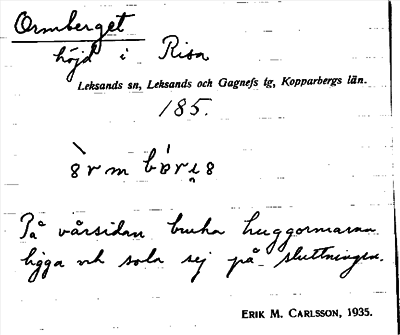 Ormberget
höjd i Risa
Leksands sn, Leksands och Gagnefs tg, Kopparbergs län.
185.
På vårsidan bruka huggormarna
ligga och sola sej på sluttningen.
ERIK M. CARLSSON, 1935.